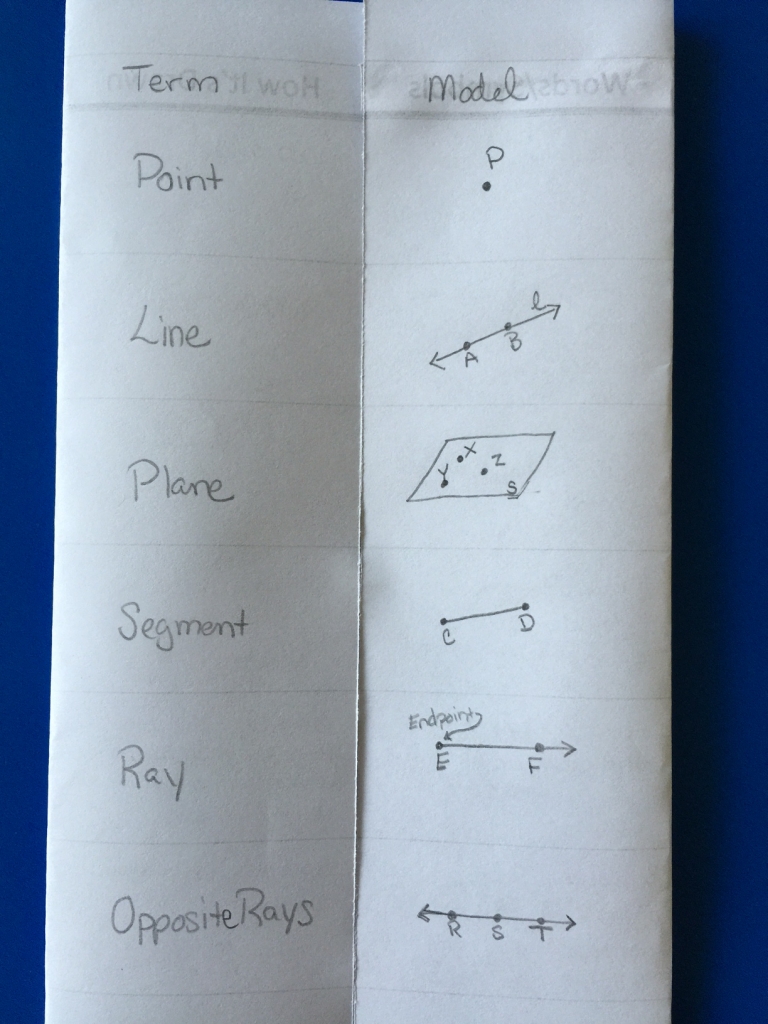 Term Model
Point P
Line A B l
Plane X Y Z S
Segment C D
Ray Endpoint E F
Opposite Rays R S T